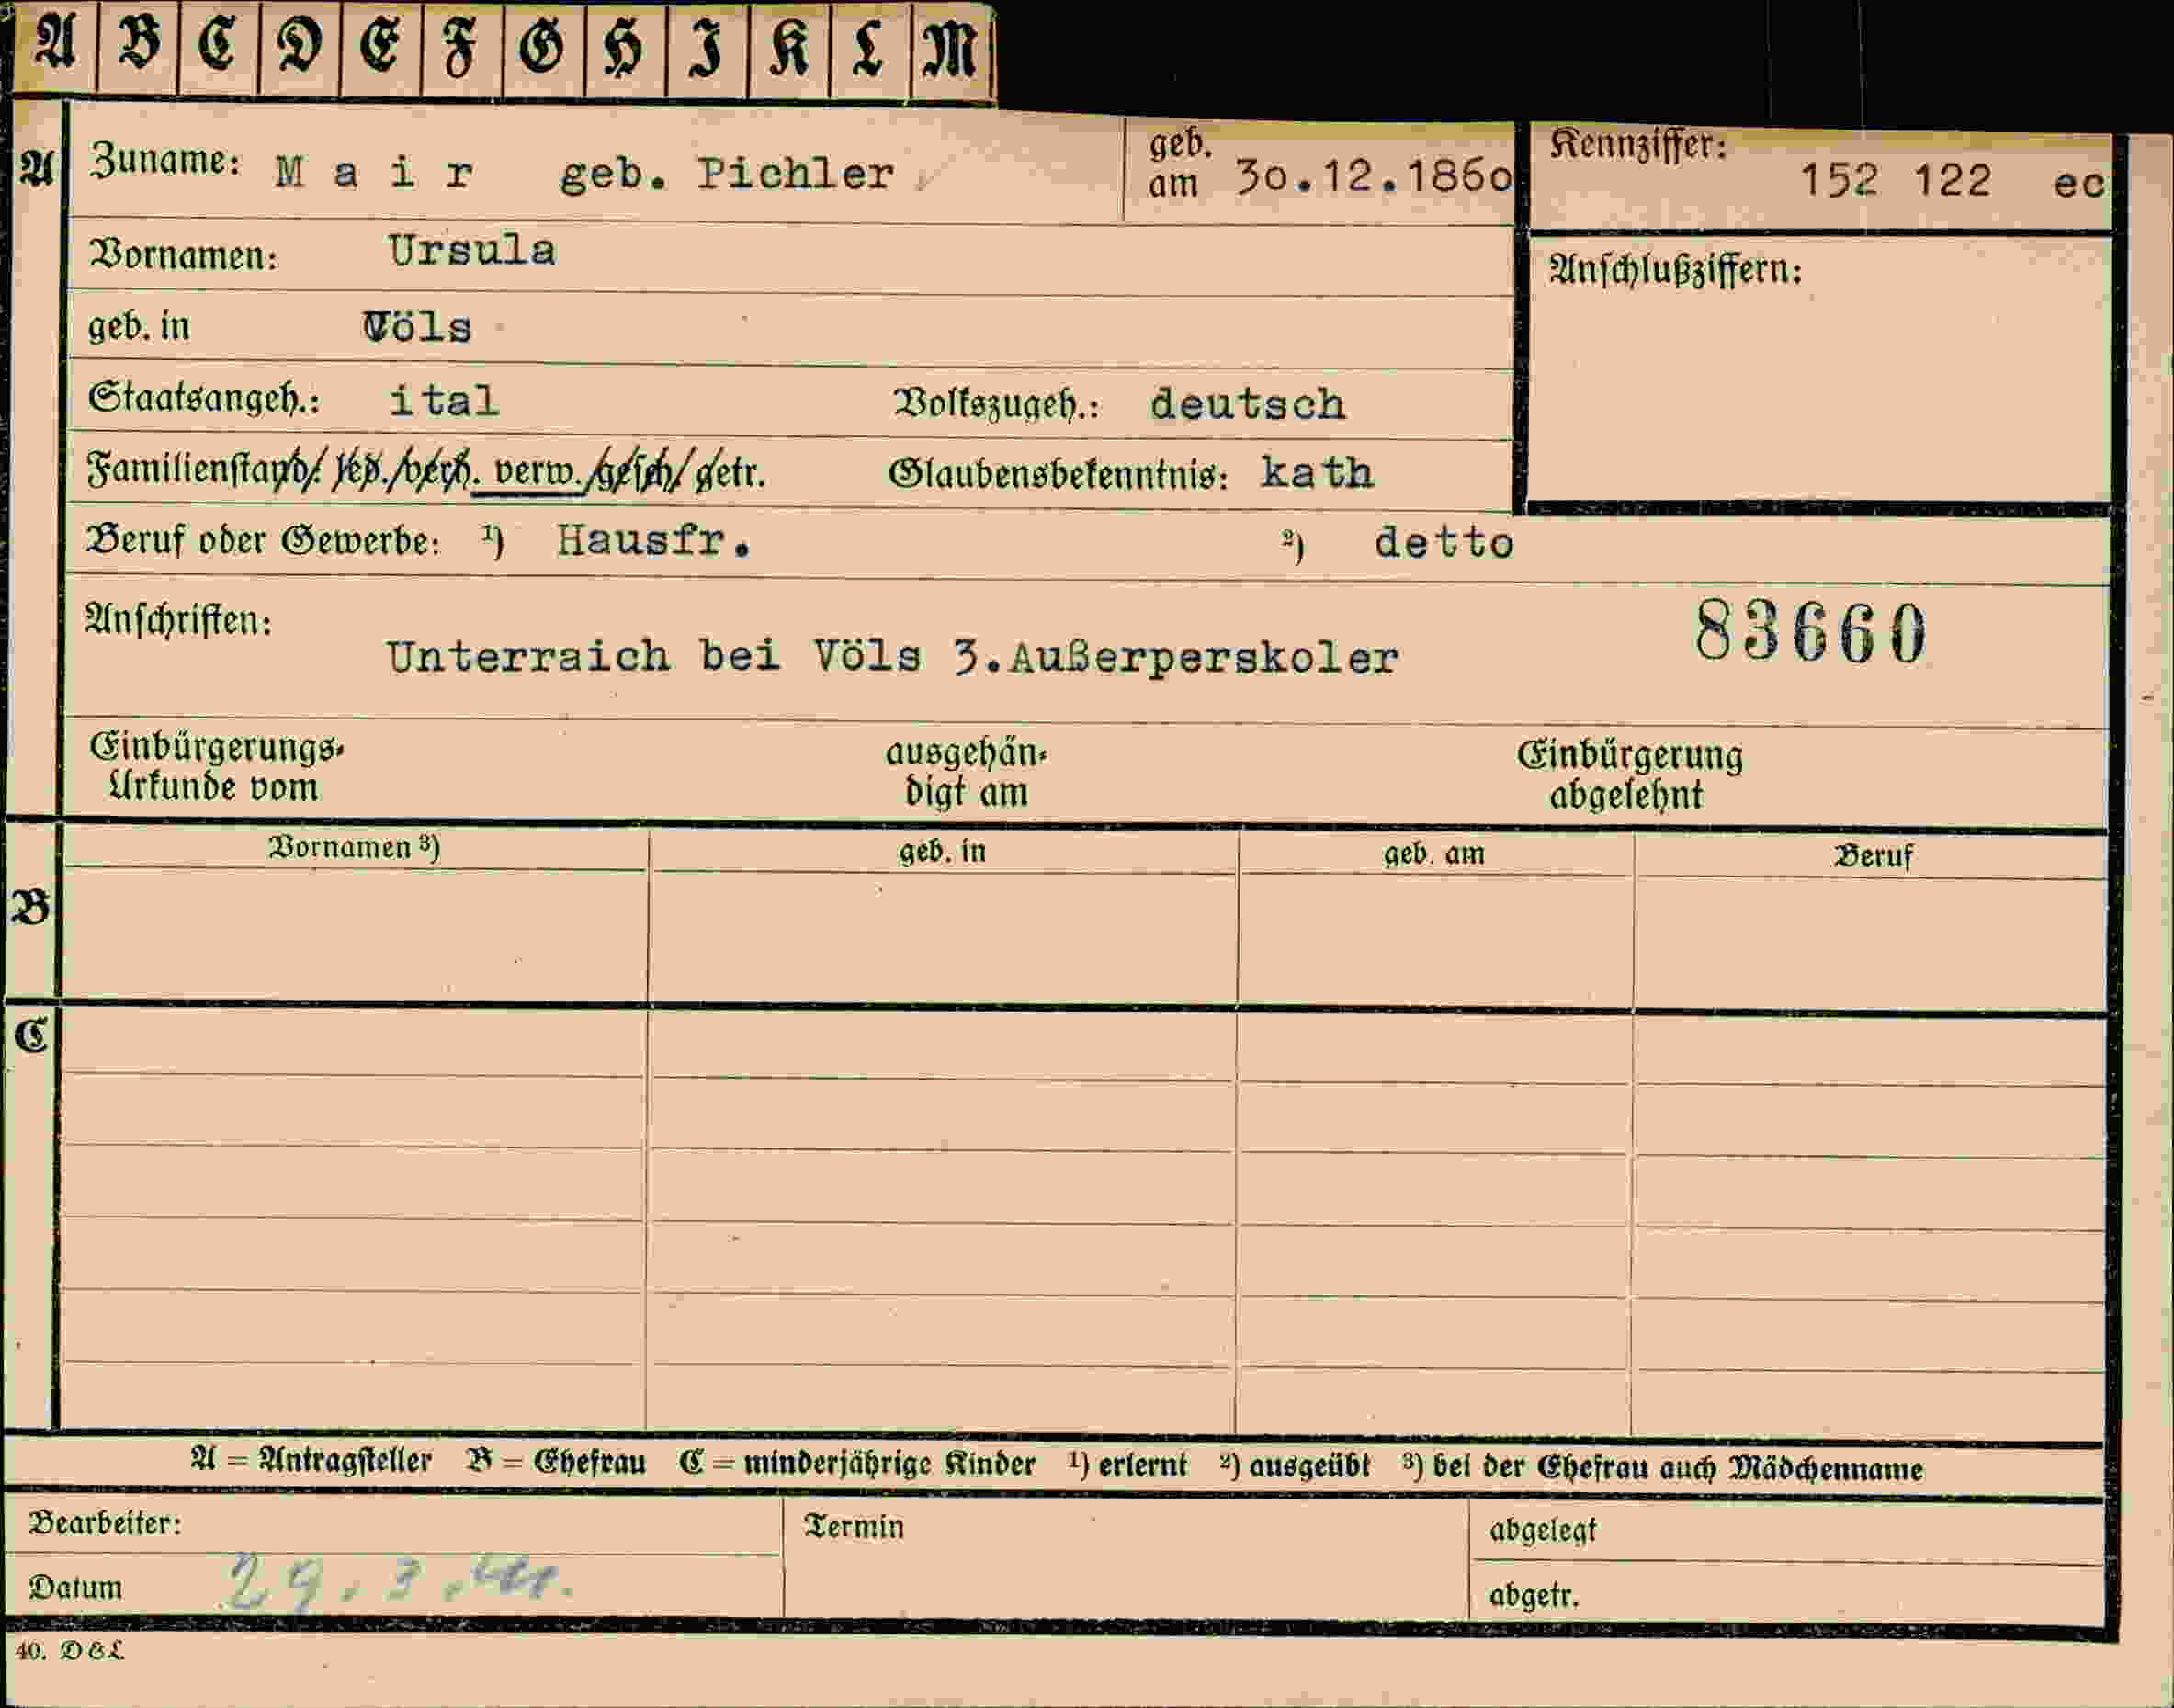 A B C D E F G H I K L M
A Zuname: Mair geb. Pichler geb. am 30.12.1860 Kennziffer: 152 122 ec
Vornamen: Ursula
Anschlußziffern:
geb. in Völs
Staatsangeh.: ital Volkszugeh.: deutsch
Familienstand: led./verh. verw./gesch/getr. Glaubensbekenntnis: kath
Beruf oder Gewerbe: ¹) Hausfr. ²) detto
Anschriften: 83660
Unterraich bei Völs 3.Außerperskoler
Einbürgerungs- ausgehän- Einbürgerung
Urkunde vom digt am abgelehnt
Vornamen ³) geb. in geb. am Beruf
B
C
A = Antragsteller B = Ehefrau C = minderjährige Kinder ¹) erlernt ²) ausgeübt ³) bei der Ehefrau auch Mädchenname
Bearbeiter: Termin abgelegt
Datum 29.3. abgetr.
40. D&L